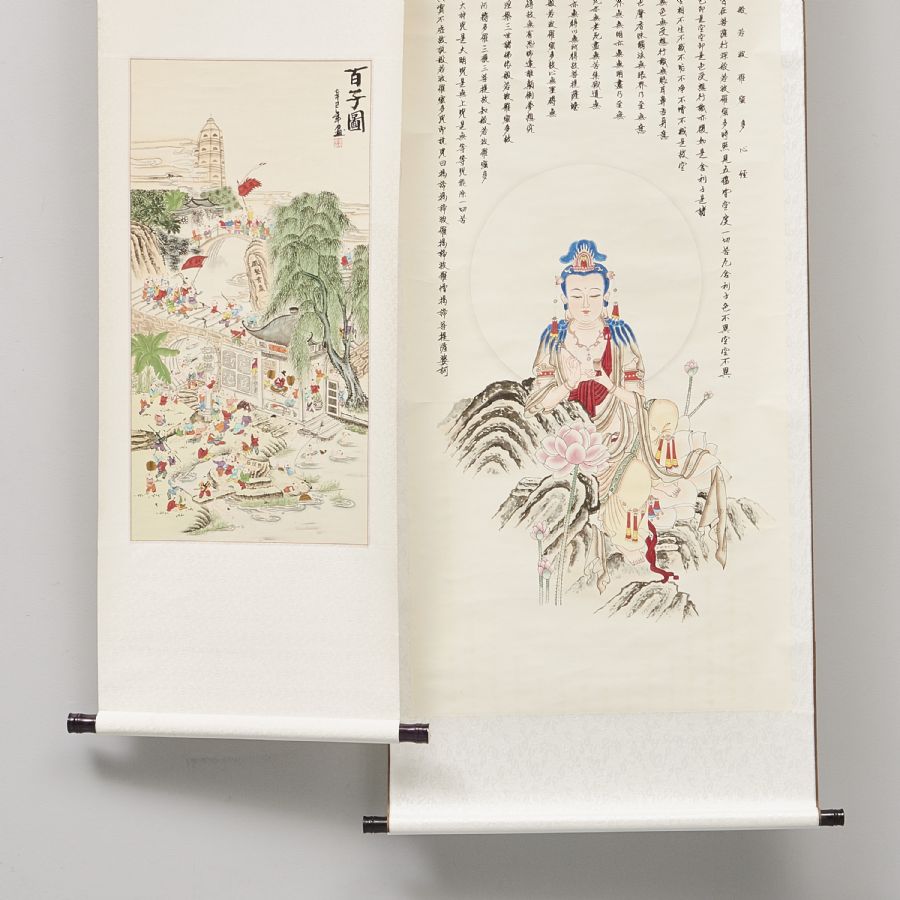 百子圖
辛巳年畫
般若波羅蜜多心經
自在菩薩行深般若波羅蜜多時照見五蘊皆空度一切苦厄舍利子色不異空空不異
色即是空空即是色受想行識亦復如是舍利子是諸
相不生不滅不垢不淨不增不減是故空
無色無受想行識無眼耳鼻舌身意
色聲香味觸法無眼界乃至無意
界無無明亦無無明盡乃至無
死亦無老死盡無苦集滅道無
亦無得以無所得故菩提薩埵
般若波羅蜜多故心無罣礙無
礙故無有恐怖遠離顛倒夢想究
涅槃三世諸佛依般若波羅蜜多故
阿耨多羅三藐三菩提故知般若波羅蜜多
大神咒是大明咒是無上咒是無等等咒能除一切苦
實不虛故說般若波羅蜜多咒即說咒曰揭諦揭諦波羅揭諦波羅僧揭諦菩提薩婆訶